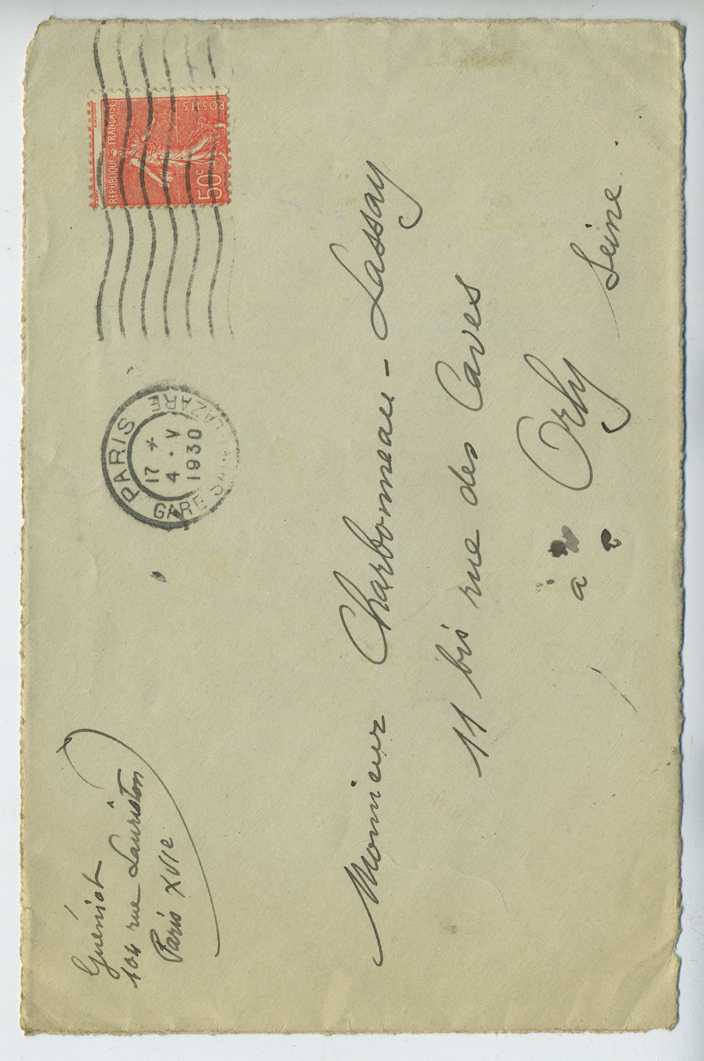 Guéniot
104 rue Lauriston
Paris XVIe
PARIS
GARE SAINT LAZARE
17 *
4 • V
1930
REPUBLIQUE FRANÇAISE
POSTES
50c
Monsieur Charbonneau - Lassay
11 bis rue des Caves
à Orly
Seine.